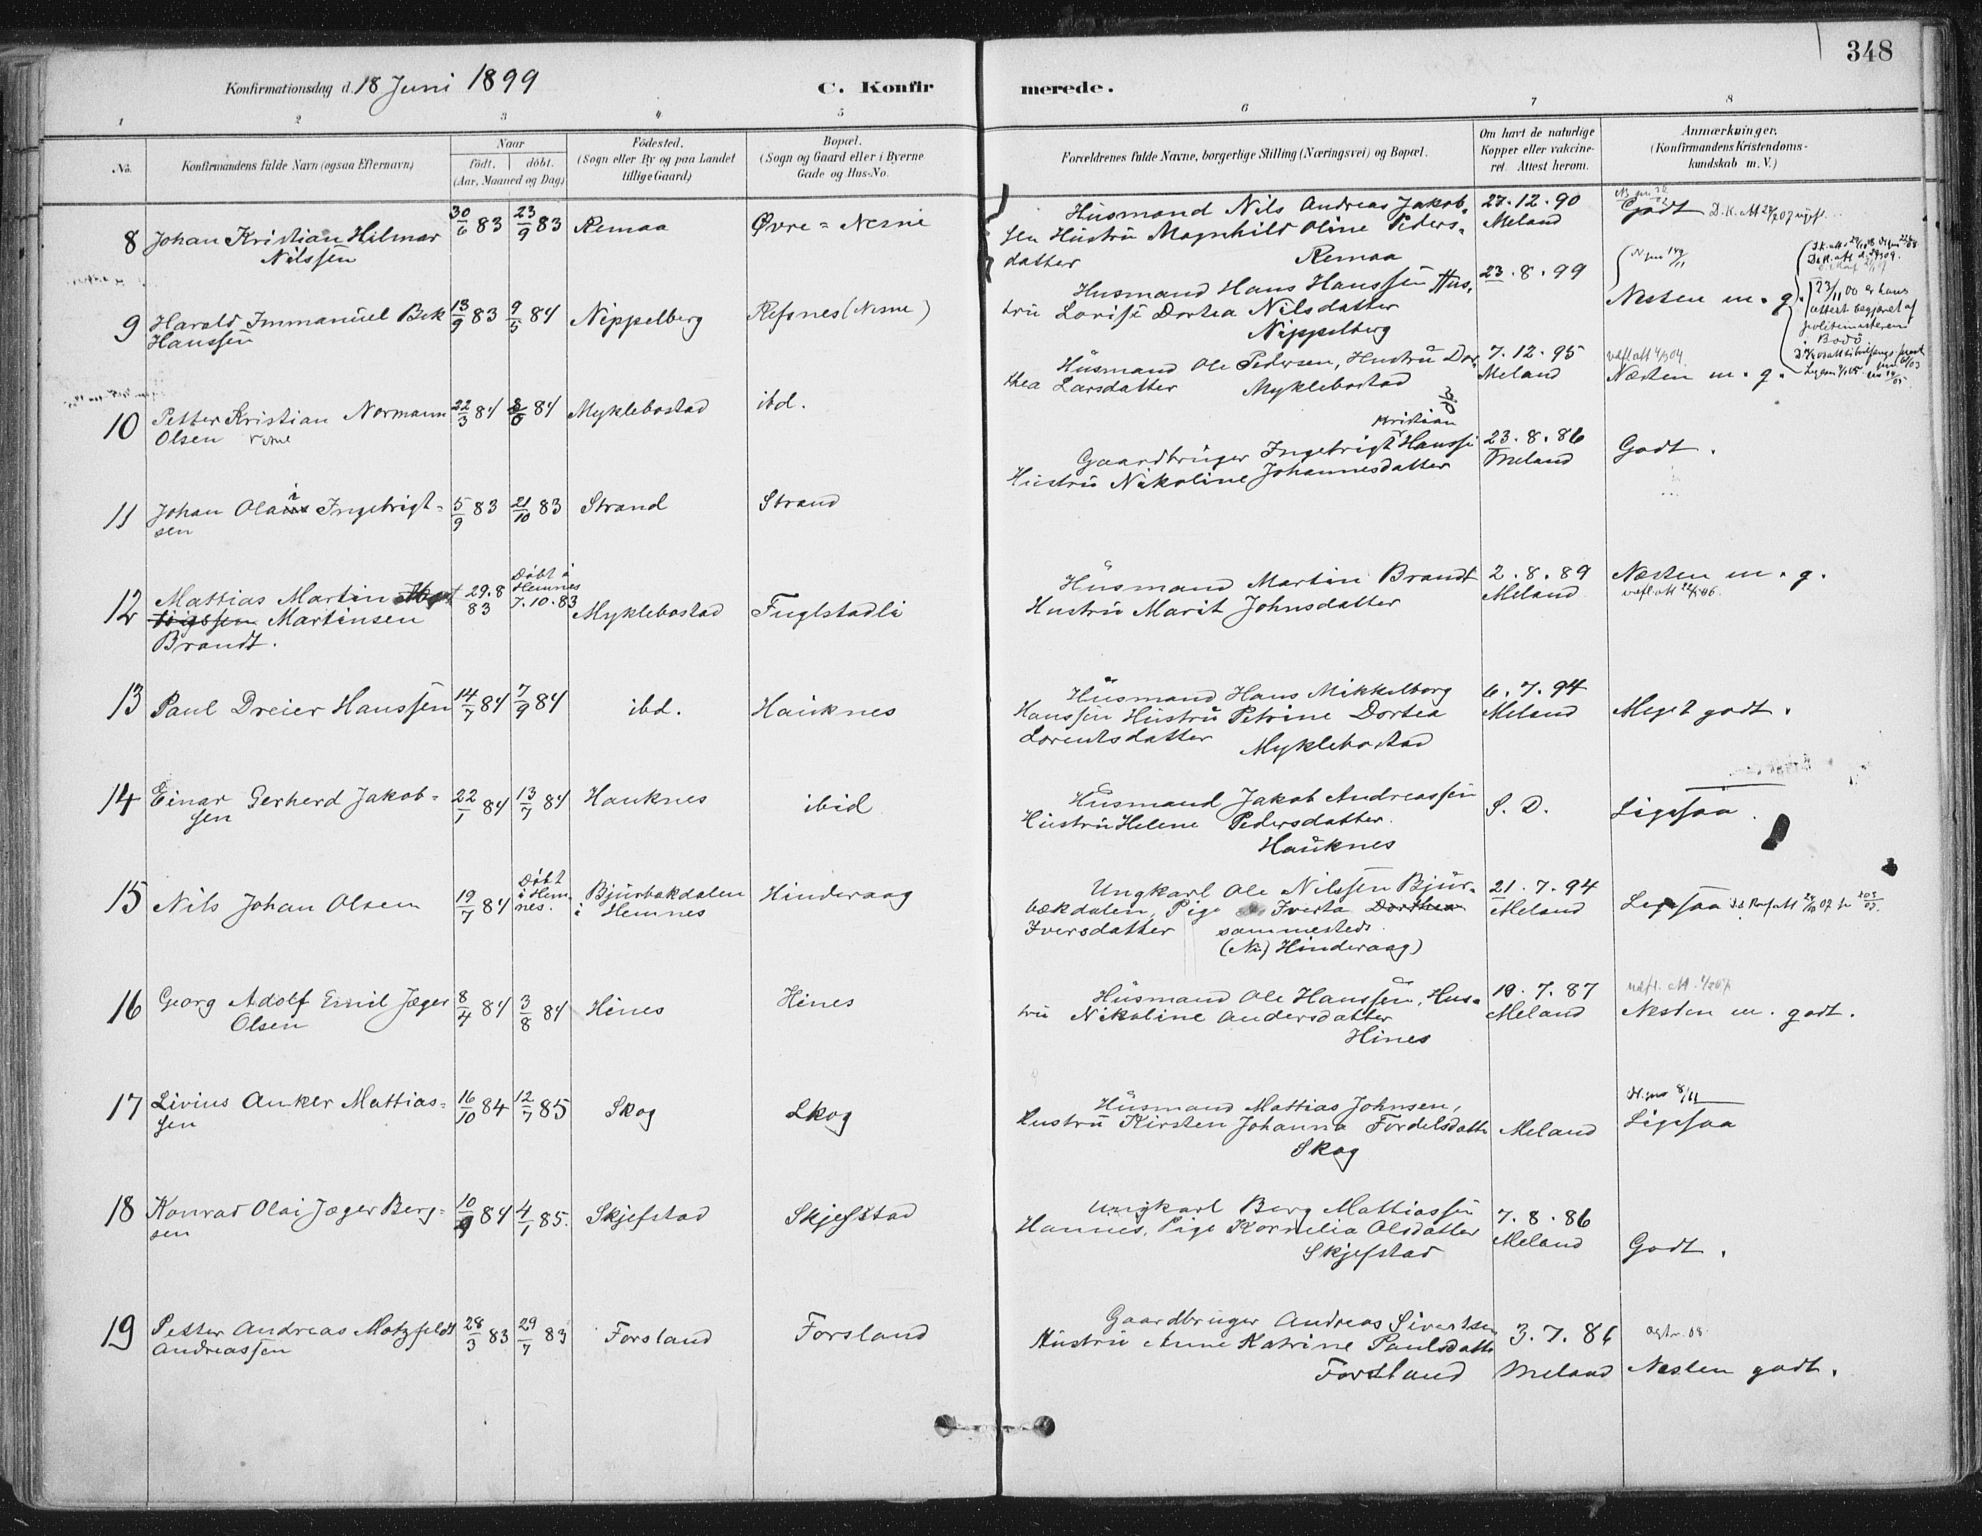 348
Konfirmationsdag d. 18 Juni 1899
C. Konfirmerede.
1 2 3 4 5 6 7 8
No.
Konfirmandens fulde Navn (ogsaa Efternavn)
Naar
født. døbt.
(Aar, Maaned og Dag)
Fødested.
(Sogn eller By og paa Landet
tillige Gaard)
Bopæl.
(Sogn og Gaard eller i Byerne
Gade og Hus-No.
Forældrenes fulde Navne, borgerlige Stilling (Næringsvei) og Bopæl.
Om havt de naturlige
Kopper eller vakcine-
ret. Attest herom.
Anmærkninger.
(Konfirmandens Kristendoms-
kundskab m. V.)
8 Johan Kristian Hilmar
Nilssen
30/6 83 23/9 83 Remaa Øvre = Nesne
Husmand Nils Andreas Jakob-
sen Hustru Magnhild Oline Peders-
datter Remaa
27.12.90
Meland
Godt
9 Harald Immanuel Bek
Hanssen
13/9 83 9/5 84 Nippelberg Refsnes (Nesne)
Husmand Hans Hanssen Hus-
tru Lovise Dortea Nilsdatter
Nippelberg
23.8.99
Nesten m. g.
23/11 00 er hans
attest begjæret af
politimesteren
i Bodö
10 Petter Kristian Normann
Olsen
22/3 84 84 Myklebostad ibd.
Husmand Ole Pedersen, Hustru Dor-
thea Larsdatter Myklebostad
7.12.95
Meland
Næsten m. g.
11 Johan Olai Ingebrigt-
sen
5/9 83 21/10 83 Strand Strand
Kristian
Gaardbruger Ingebrigt Hanssen
Hustru Nikoline Johannesdatter
23.8.86
Meland
Godt.
12 Mattias Martin
Martinsen
Brandt.
29.8
83
Döbt i
Hemnes
7.10.83
Myklebostad Fuglstadli
Husmand Martin Brandt
Hustru Marit Johnsdatter
2.8.89
Meland
Næsten m. g.
13 Paul Dreier Hanssen 14/7 84 7/9 84 ibd. Hauknes
Husmand Hans Mikkelborg
Hanssen Hustru Petrine Dortea
Lorentsdatter Myklebostad
6.7.94
Meland
Meget godt.
14 Einar Gerherd Jakob-
sen
22/1 84 13/7 84 Hauknes ibid
Husmand Jakob Andreassen
Hustru Helene Pedersdatter.
Hauknes
S. D.
Ligesaa.
15 Nils Johan Olsen 19/7 84
Döbt
i Hem-
nes.
Bjurbækdalen
i Hemnes
Hinderaag
Ungkarl Ole Nilssen Bjur-
bækdalen, Pige Iverta Dorthea
Iversdatter sammesteds.
(Nu) Hinderaag)
21.7.94
Meland
Ligesaa
16 Georg Adolf Emil Jæger
Olsen
8/4 84 3/8 84 Hines Hines
Husmand Ole Hanssen, Hus-
tru Nikoline Andersdatter
Hines
10.7.87
Meland
Nesten m. godt.
17 Livius Anker Mattias-
sen
16/10 84 12/7 85 Skog Skog
Husmand Mattias Johnsen,
Hustru Kirsten Johanna Fordelsdatt
Skog
Meland
Ligesaa
18 Konrad Olai Jæger Berg-
sen
10/9 84 4/1 85. Skjefstad Skjefstad
Ungkarl Berg Mattiassen
Hannes, Pige Kornelia Olsdatter
Skjefstad
7.8.86
Meland
Godt.
19 Petter Andreas Motzfeldt
Andreassen
28/3 83 29/7 83 Forsland Forsland
Gaardbruger Andreas Sivertsen
Hustru Anne Katrine Paulsdatt
Forsland
3.7.86
Meland
Nesten godt.